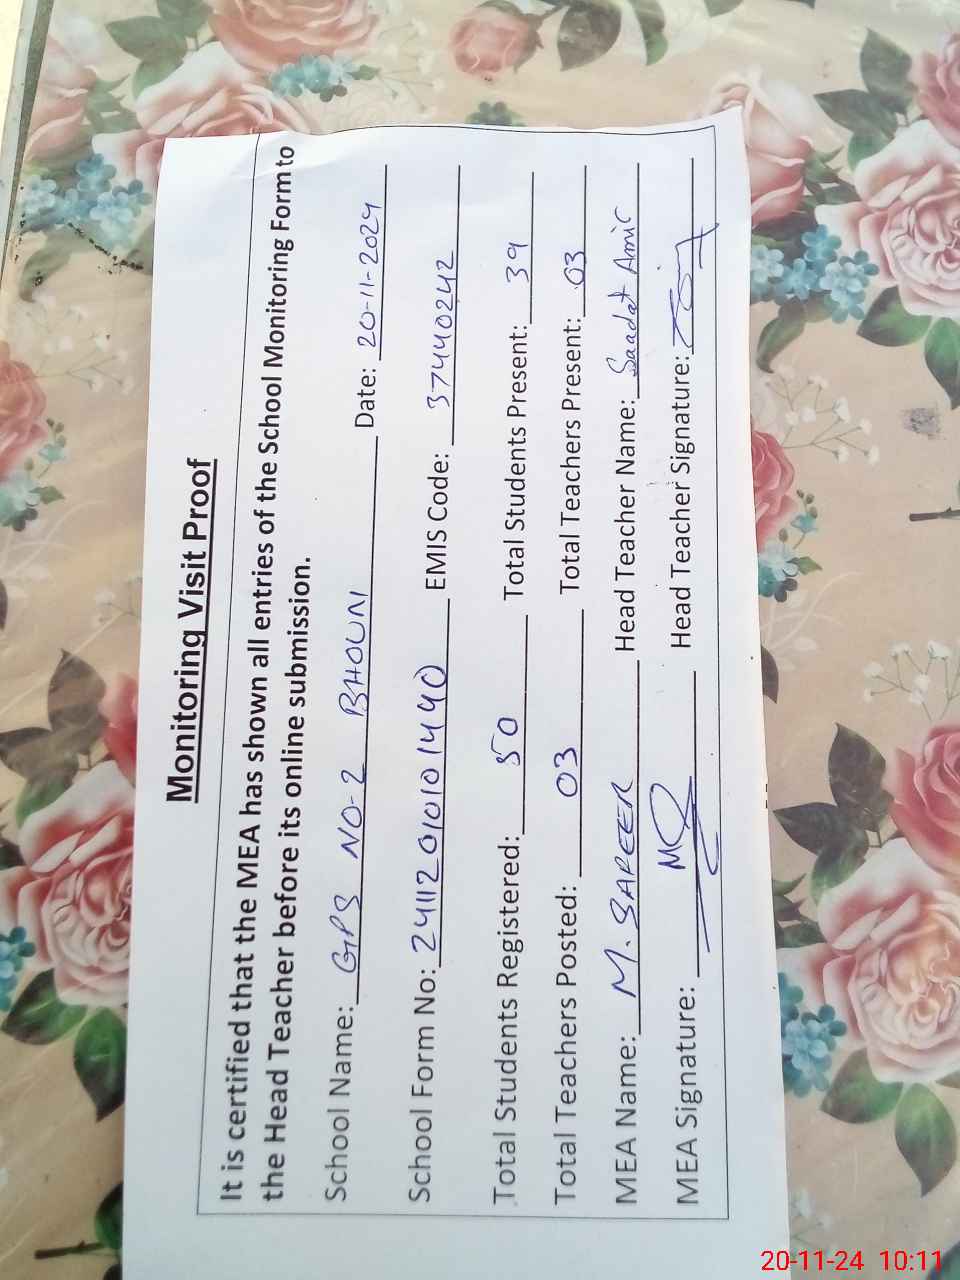 Monitoring Visit Proof
It is certified that the MEA has shown all entries of the School Monitoring Form to
the Head Teacher before its online submission.
School Name: GPS NO-2 BHOUNI Date: 20-11-2024
School Form No: 24112010101440 EMIS Code: 37440242
Total Students Registered: 50 Total Students Present: 39
Total Teachers Posted: 03 Total Teachers Present: 03
MEA Name: M. SAFEER Head Teacher Name: Saadat Amir
MEA Signature: Head Teacher Signature:
20-11-24 10:11